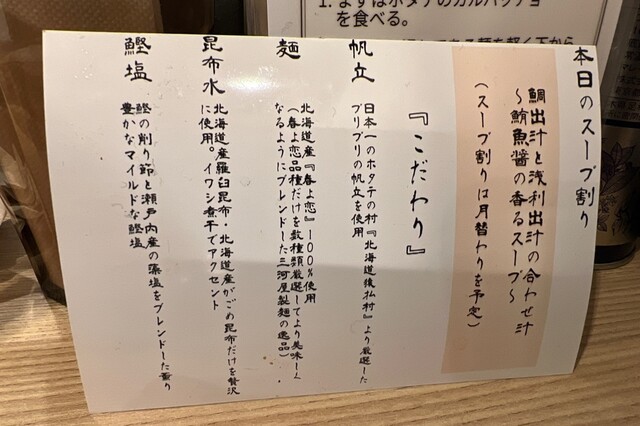 1. まずはホタテのカルパッチョ
を食べる。
本日のスープ割り
鯛出汁と浅利出汁の合わせ汁
～鮪魚醤の香るスープ～
(スープ割りは月替わりを予定)
『こだわり』
帆立
日本一のホタテの村『北海道猿払村』より厳選した
プリプリの帆立を使用
麺
北海道産『春よ恋』100%使用
(春よ恋品種だけを数種類厳選してより美味しく
なるようにブレンドした三河屋製麺の逸品)
昆布水
北海道産羅臼昆布・北海道産がごめ昆布だけを贅沢
に使用。イワシ煮干でアクセント
鰹塩
鰹の削り節と瀬戸内産の藻塩をブレンドした香り
豊かなマイルドな鰹塩